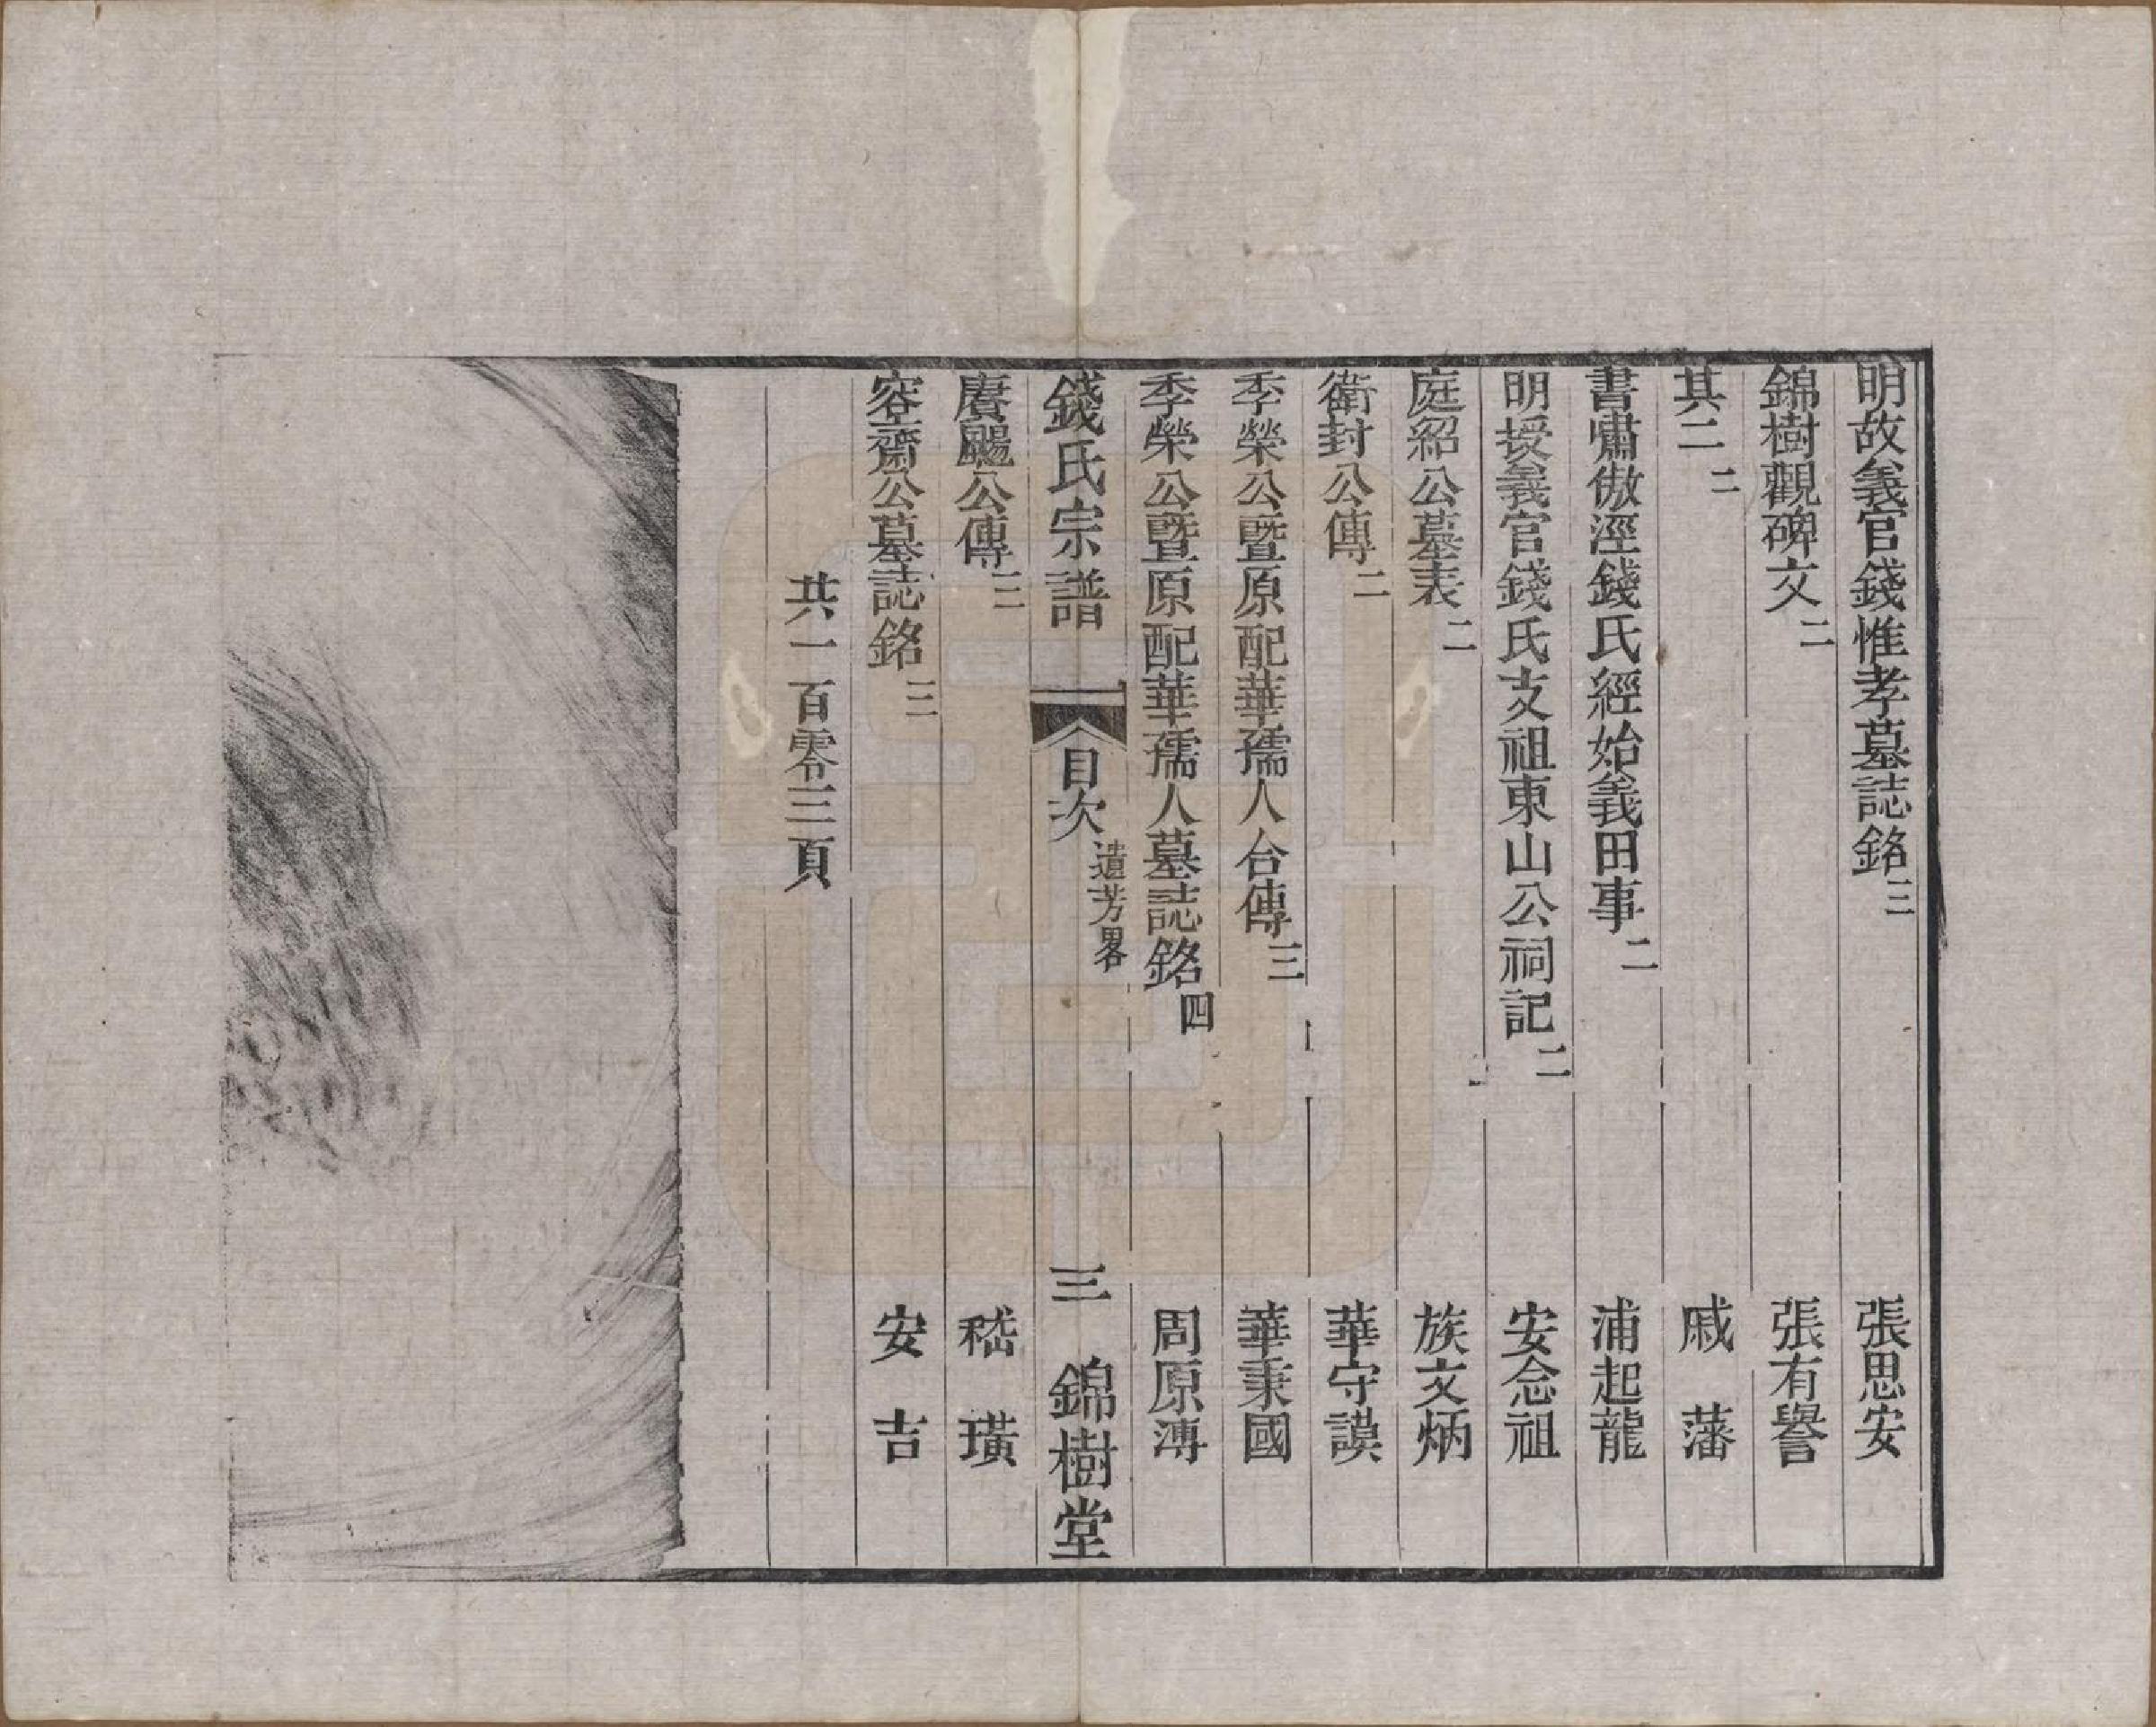 明故義官錢惟孝墓誌銘三 張思安
錦樹觀碑文二 張有譽
其二二 戚藩
書嘯傲涇錢氏經始義田事二 浦起龍
明授義官錢氏支祖東山公祠記二 安念祖
庭紹公墓表二 族文炳
衛封公傳二 華守謨
季榮公暨原配華孺人合傳三 華秉國
季榮公暨原配華孺人墓誌銘四 周原溥
錢氏宗譜 目次 遺芳畧 三 錦樹堂
賡颺公傳三 嵇璜
容齋公墓誌銘三 安吉
共一百零三頁